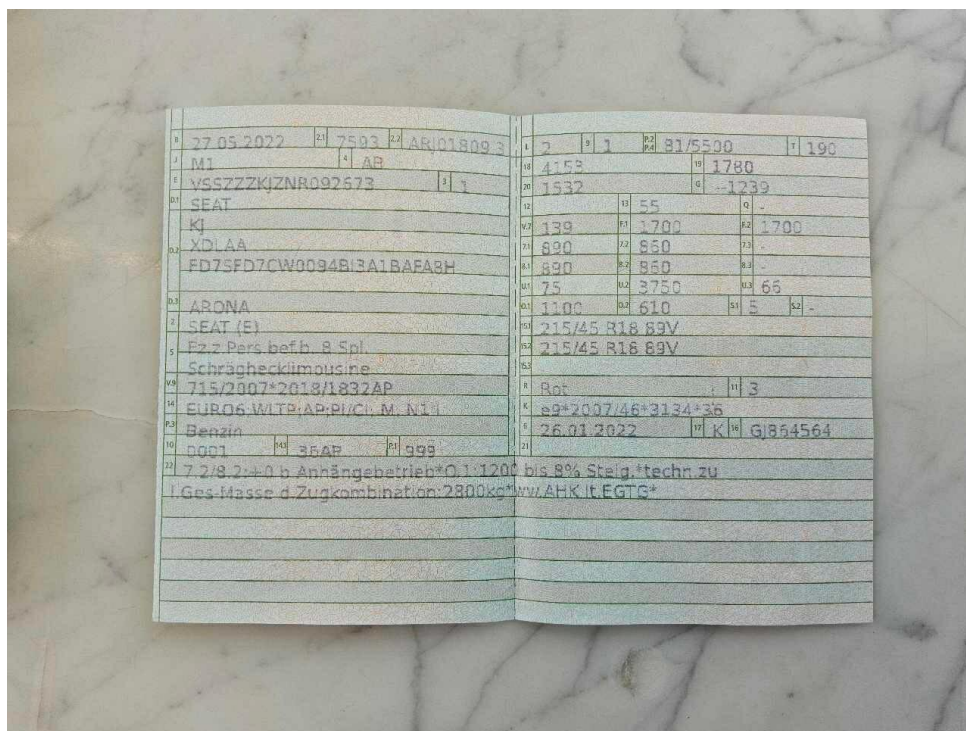 B 27.05.2022 2.1 7593 2.2 ARJ01809 3
J M1 4 AB
E VSSZZZKJZNR092673 3 1
D.1 SEAT
KJ
D.2 XDLAA
FD7SFD7CW0094BI3A1BAFA8H
D.3 ARONA
2 SEAT (E)
5 Fz.z.Pers.bef.b. 8 Spl.
Schräghecklimousine
V.9 715/2007*2018/1832AP
14 EURO6;WLTP;AP;PI/CI; M, N1 I
P.3 Benzin
10 0001 14.1 36AP P.1 999
L 2 9 1 P.2 P.4 81/5500 T 190
18 4153 19 1780
20 1532 G --1239
12 13 55 Q -
V.7 139 F.1 1700 F.2 1700
7.1 890 7.2 860 7.3 -
8.1 890 8.2 860 8.3 -
U.1 75 U.2 3750 U.3 66
O.1 1100 O.2 610 S.1 5 S.2 -
15.1 215/45 R18 89V
15.2 215/45 R18 89V
15.3
R Rot 11 3
K e9*2007/46*3134*36
6 26.01.2022 17 K 16 GJ864564
21
22 7.2/8.2:+0 b.Anhängebetrieb*O.1:1200 bis 8% Steig.*techn.zu
l.Ges-Masse d.Zugkombination:2800kg*ww.AHK lt.EGTG*